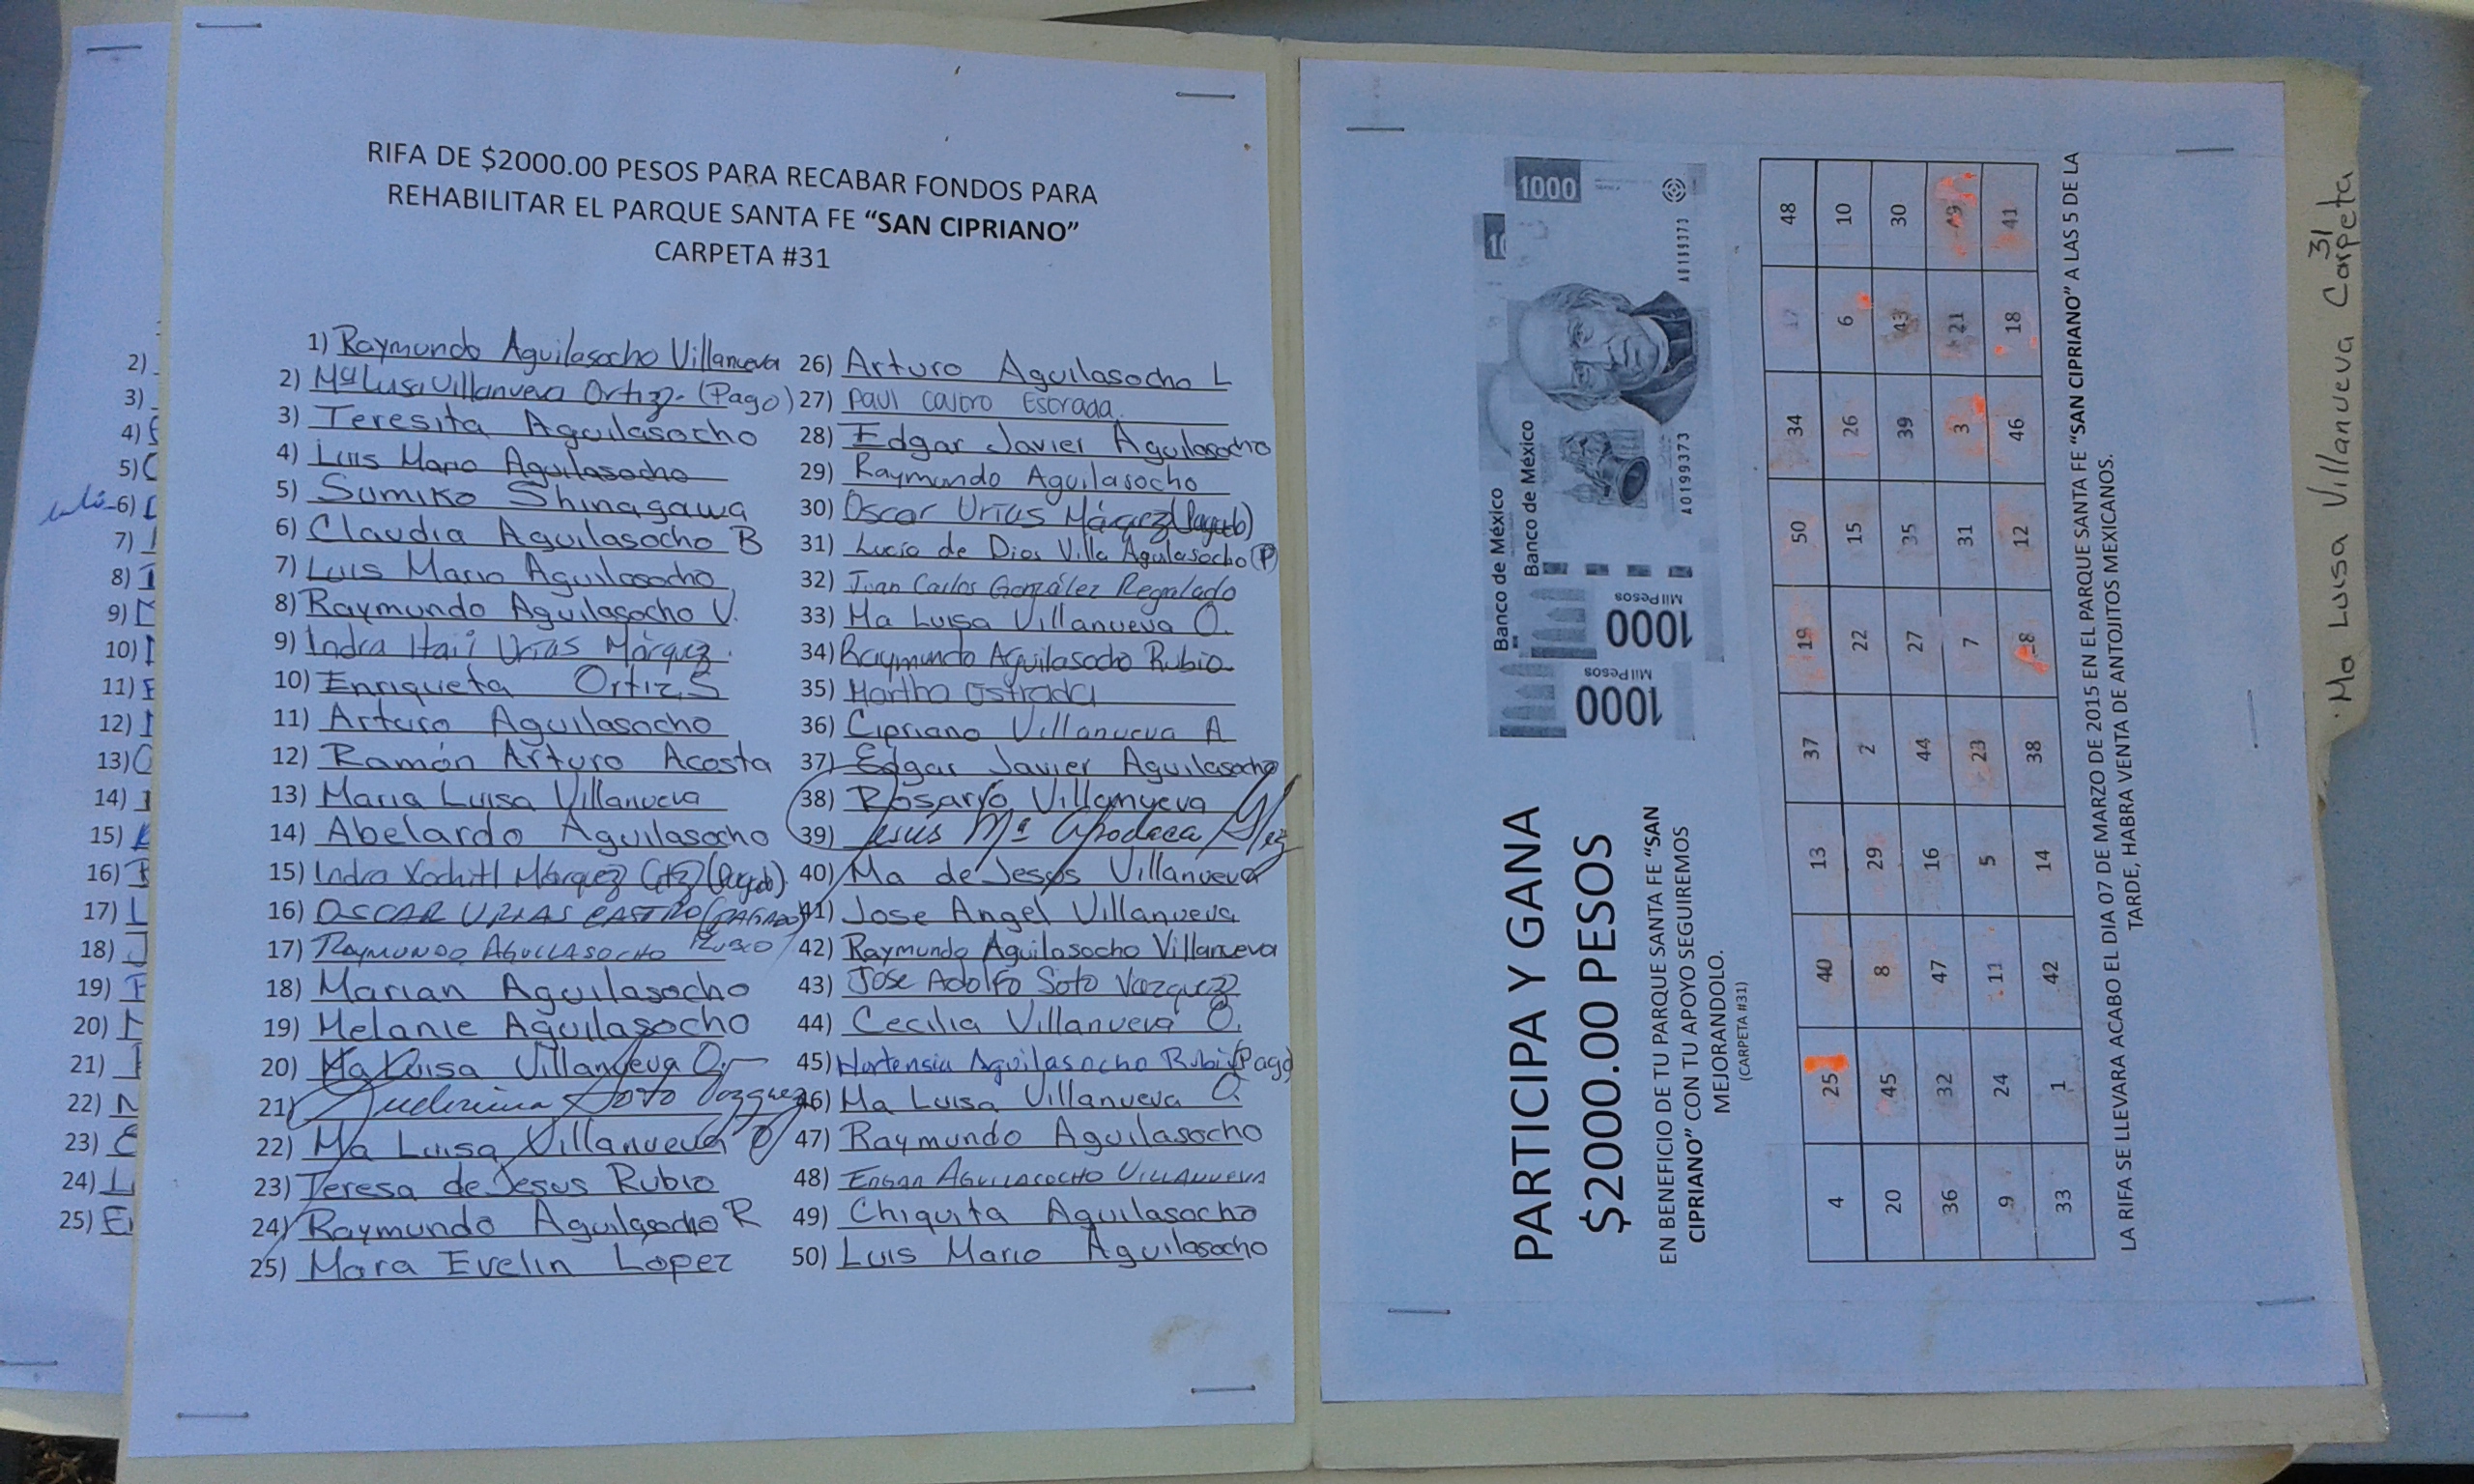 RIFA DE $2000.00 PESOS PARA RECABAR FONDOS PARA
REHABILITAR EL PARQUE SANTA FE “SAN CIPRIANO”
CARPETA #31
1) Raymundo Aguilasocho Villanueva
2) Ma Luisa Villanueva Ortiz. (Pago)
3) Teresita Aguilasocho
4) Luis Mario Aguilasocho
5) Sumiko Shinagawa
6) Claudia Aguilasocho B
7) Luis Mario Aguilasocho
8) Raymundo Aguilasocho V.
9) Indra Itaii Urias Márquez.
10) Enriqueta Ortiz S
11) Arturo Aguilasocho
12) Ramón Arturo Acosta
13) Maria Luisa Villanueva
14) Abelardo Aguilasocho
15) Indra Xochitl Márquez (Pagado)
16) OSCAR URIAS CASTRO (PAGADO)
17) RAYMUNDO AGUILASOCHO RUBIO
18) Marian Aguilasocho
19) Melanie Aguilasocho
20) Ma Luisa Villanueva O.
21) Soto Vazquez
22) Ma Luisa Villanueva O
23) Teresa de Jesus Rubio
24) Raymundo Aguilasocho R
25) Mara Evelin Lopez
26) Arturo Aguilasocho L
27) Paul Castro Estrada.
28) Edgar Javier Aguilasocho
29) Raymundo Aguilasocho
30) Oscar Urias Márquez (Pagado)
31) Lucio de Dios Villa Aguilasocho (P)
32) Juan Carlos González Regalado
33) Ma Luisa Villanueva O.
34) Raymundo Aguilasocho Rubio
35) Martha Estrada
36) Cipriano Villanueva A
37) Edgar Javier Aguilasocho
38) Rosario Villanueva
39) Jesus Ma Apodaca Glez
40) Ma de Jesus Villanueva
41) Jose Angel Villanueva
42) Raymundo Aguilasocho Villanueva
43) Jose Adolfo Soto Vazquez
44) Cecilia Villanueva O.
45) Hortensia Aguilasocho Rubio (Pago)
46) Ma Luisa Villanueva O.
47) Raymundo Aguilasocho
48) EDGAR AGUILASOCHO VILLANUEVA
49) Chiquita Aguilasocho
50) Luis Mario Aguilasocho
2)
3)
4)
5)
6)
7)
8)
9)
10)
11)
12)
13)
14)
15)
16)
17)
18)
19)
20)
21)
22)
23)
24)
25)
PARTICIPA Y GANA
$2000.00 PESOS
EN BENEFICIO DE TU PARQUE SANTA FE “SAN
CIPRIANO” CON TU APOYO SEGUIREMOS
MEJORANDOLO.
(CARPETA #31)
Banco de México
Banco de México
1000
1000
Mil Pesos
1000
Mil Pesos
A0199373
A0199373
4 25 40 13 37 19 50 34 17 48
20 45 8 29 2 22 15 26 6 10
36 32 47 16 44 27 35 39 43 30
9 24 11 5 23 7 31 3 21 49
33 1 42 14 38 28 12 46 18 41
LA RIFA SE LLEVARA ACABO EL DIA 07 DE MARZO DE 2015 EN EL PARQUE SANTA FE “SAN CIPRIANO” A LAS 5 DE LA
TARDE, HABRA VENTA DE ANTOJITOS MEXICANOS.
Ma Luisa Villanueva Carpeta 31